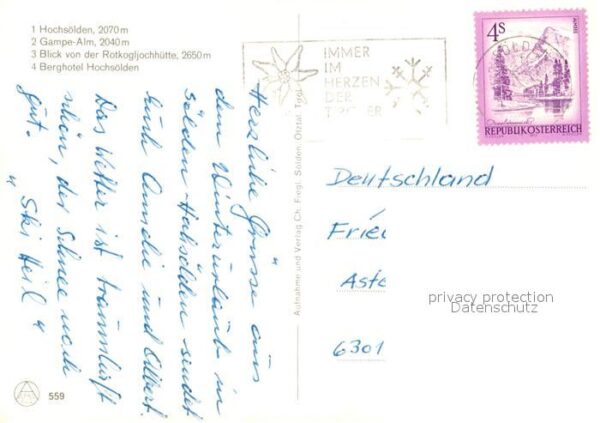 1 Hochsölden, 2070 m
2 Gampe-Alm, 2040 m
3 Blick von der Rotkogljochhütte, 2650 m
4 Berghotel Hochsölden
Herzliche Grüsse aus
dem Winterurlaub in
Sölden-Hochsölden sendet
Euch Amelie und Gilbert.
Das Wetter ist traumhaft
schön, der Schnee noch
gut.
"Ski Heil"
559
Aufnahme und Verlag Ch. Fiegl, Sölden, Ötztal, Tirol
IMMER
IM
HERZEN
DER
TIROLER
SÖLDEN
4S
REPUBLIK ÖSTERREICH
Deutschland
Fried
Aste
6301
privacy protection
Datenschutz